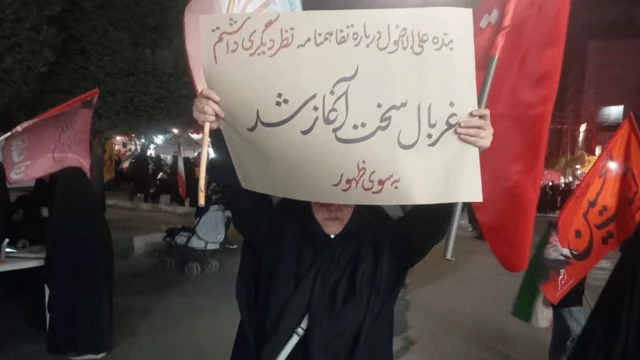 بنده علی الاصول درباره تفاهمنامه نظر دیگری داشتم
غربال سخت آغاز شد
به سوی ظهور
حسین